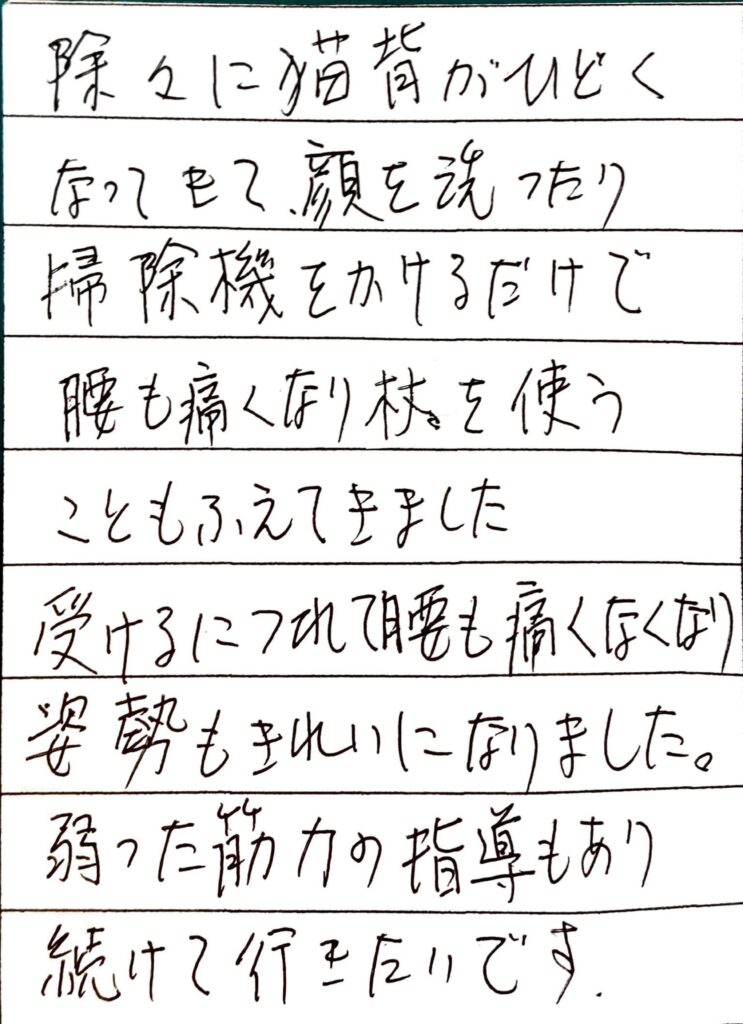 除々に猫背がひどく
なってきて、顔を洗ったり
掃除機をかけるだけで
腰も痛くなり杖を使う
こともふえてきました
受けるにつれて腰も痛くなくなり
姿勢もきれいになりました。
弱った筋力の指導もあり
続けて行きたいです.